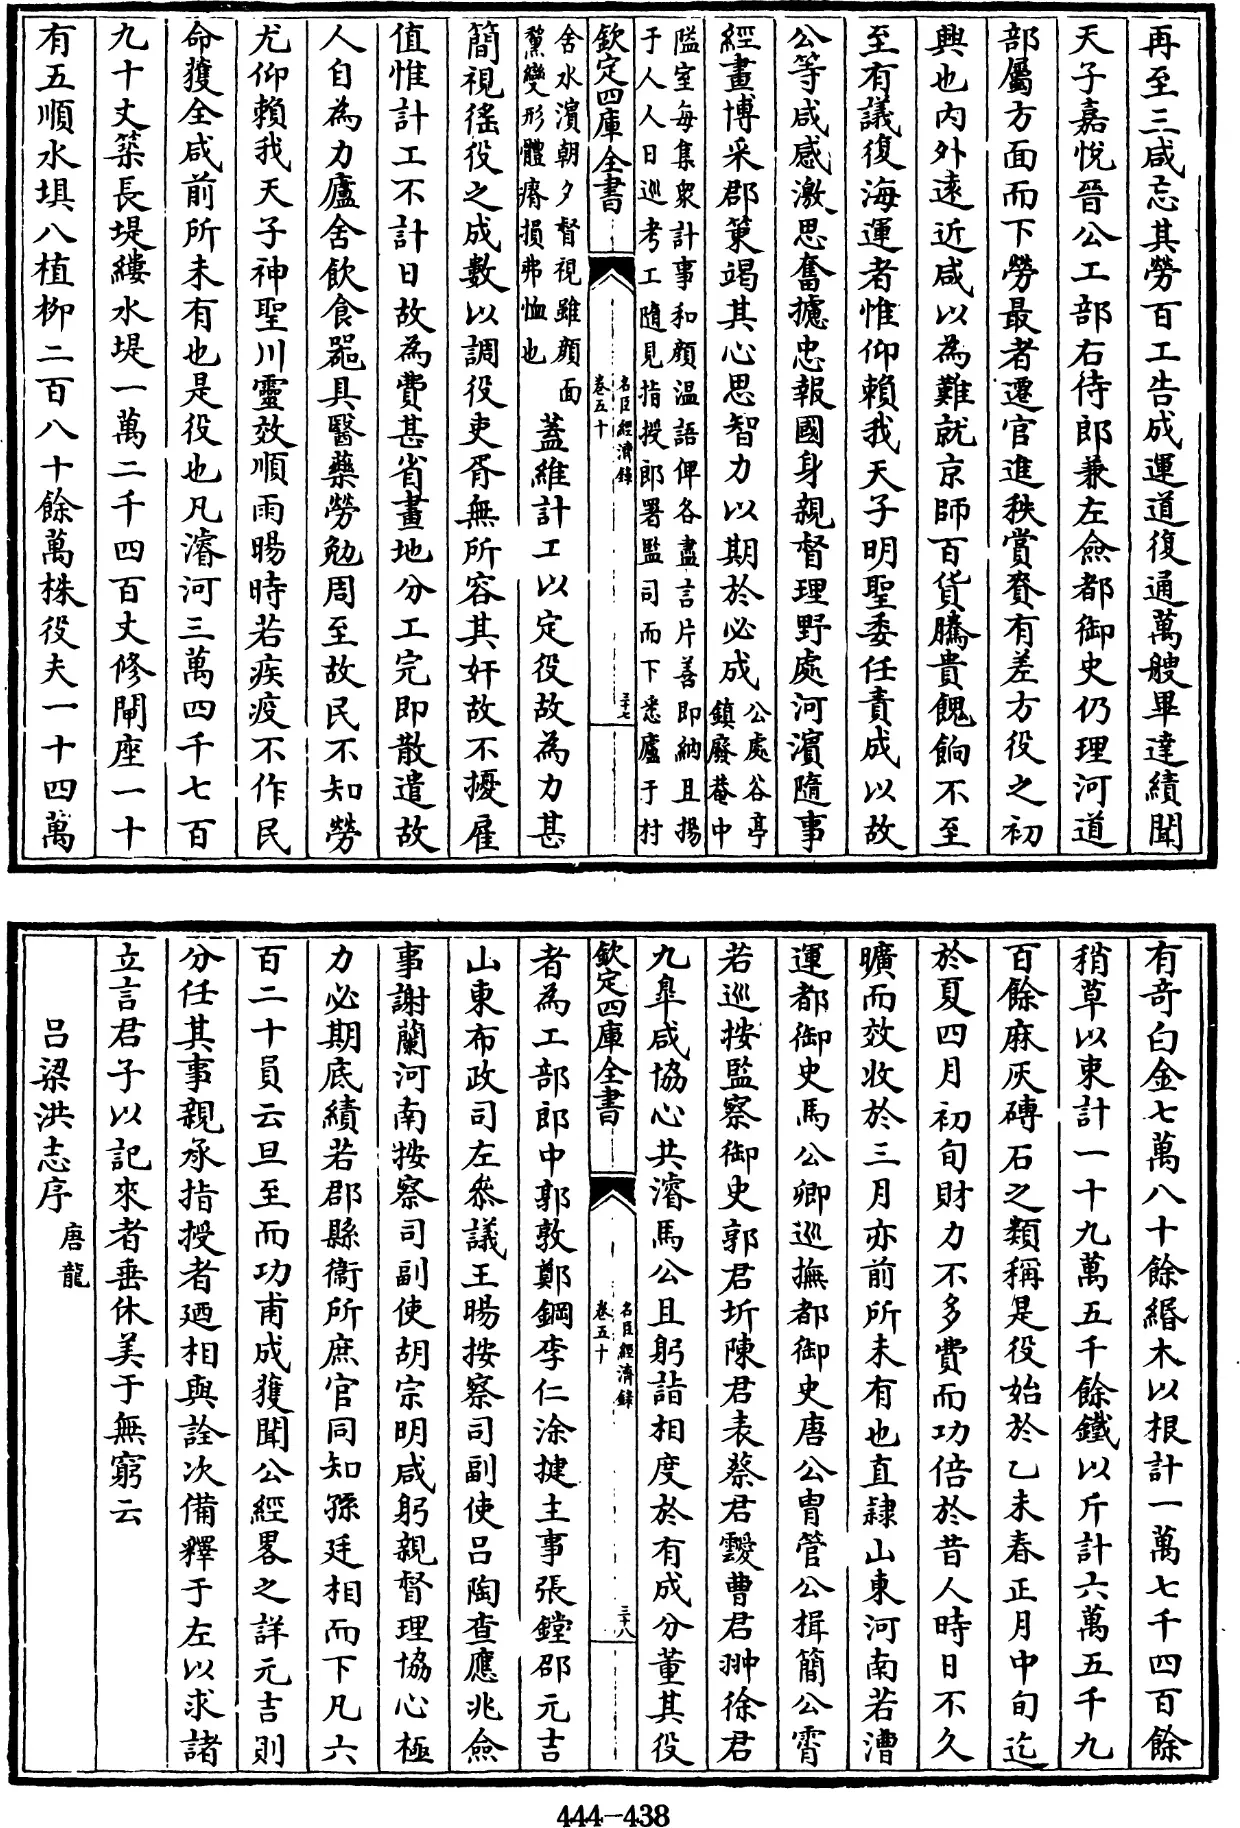 再至三咸忘其勞百工告成運道復通萬艘畢達績聞
天子嘉悅晉公工部右侍郎兼左僉都御史仍理河道
部屬方面而下勞最者遷官進秩賞賚有差方役之初
興也内外遠近咸以為難就京師百貨騰貴餽餉不至
至有議復海運者惟仰賴我天子明聖委任責成以故
公等咸感激思奮攄忠報國身親督理野處河濱隨事
經畫博采郡策竭其心思智力以期於必成公處谷亭鎮廢菴中
隘室每集衆計事和顔温語俾各盡言片善即納且揚
于人人日巡考工隨見指授郎署監司而下悉廬于村
欽定四庫全書
名臣經濟錄
卷五十
三十七
舍水濱朝夕督視雖顔面
黧變形體瘠損弗恤也
蓋維計工以定役故為力甚
簡視徭役之成數以調役吏胥無所容其奸故不擾雇
值惟計工不計日故為費甚省畫地分工完即散遣故
人自為力廬舍飲食噐具醫藥勞勉周至故民不知勞
尤仰賴我天子神聖川靈效順雨暘時若疾疫不作民
命獲全咸前所未有也是役也凡濬河三萬四千七百
九十丈築長堤縷水堤一萬二千四百丈修閘座一十
有五順水埧八植栁二百八十餘萬株役夫一十四萬
有奇白金七萬八十餘緡木以根計一萬七千四百餘
稍草以束計一十九萬五千餘鐵以斤計六萬五千九
百餘麻灰磚石之類稱是役始於乙未春正月中旬迄
於夏四月初旬財力不多費而功倍於昔人時日不久
曠而效收於三月亦前所未有也直隷山東河南若漕
運都御史馬公卿巡撫都御史唐公胄管公楫簡公霄
若巡按監察御史郭君圻陳君表蔡君靉曹君翀徐君
九臯咸協心共濬馬公且躬詣相度於有成分董其役
欽定四庫全書
名臣經濟錄
卷五十
三十八
者為工部郎中郭敦鄭鋼李仁涂揵主事張鏜邵元吉
山東布政司左叅議王暘按察司副使吕陶查應兆僉
事謝蘭河南按察司副使胡宗明咸躬親督理協心極
力必期底績若郡縣衞所庶官同知孫廷相而下凡六
百二十員云旦至而功甫成獲聞公經畧之詳元吉則
分任其事親承指授者廼相與詮次備釋于左以求諸
立言君子以記來者垂休美于無窮云
吕梁洪志序 唐龍
444-438